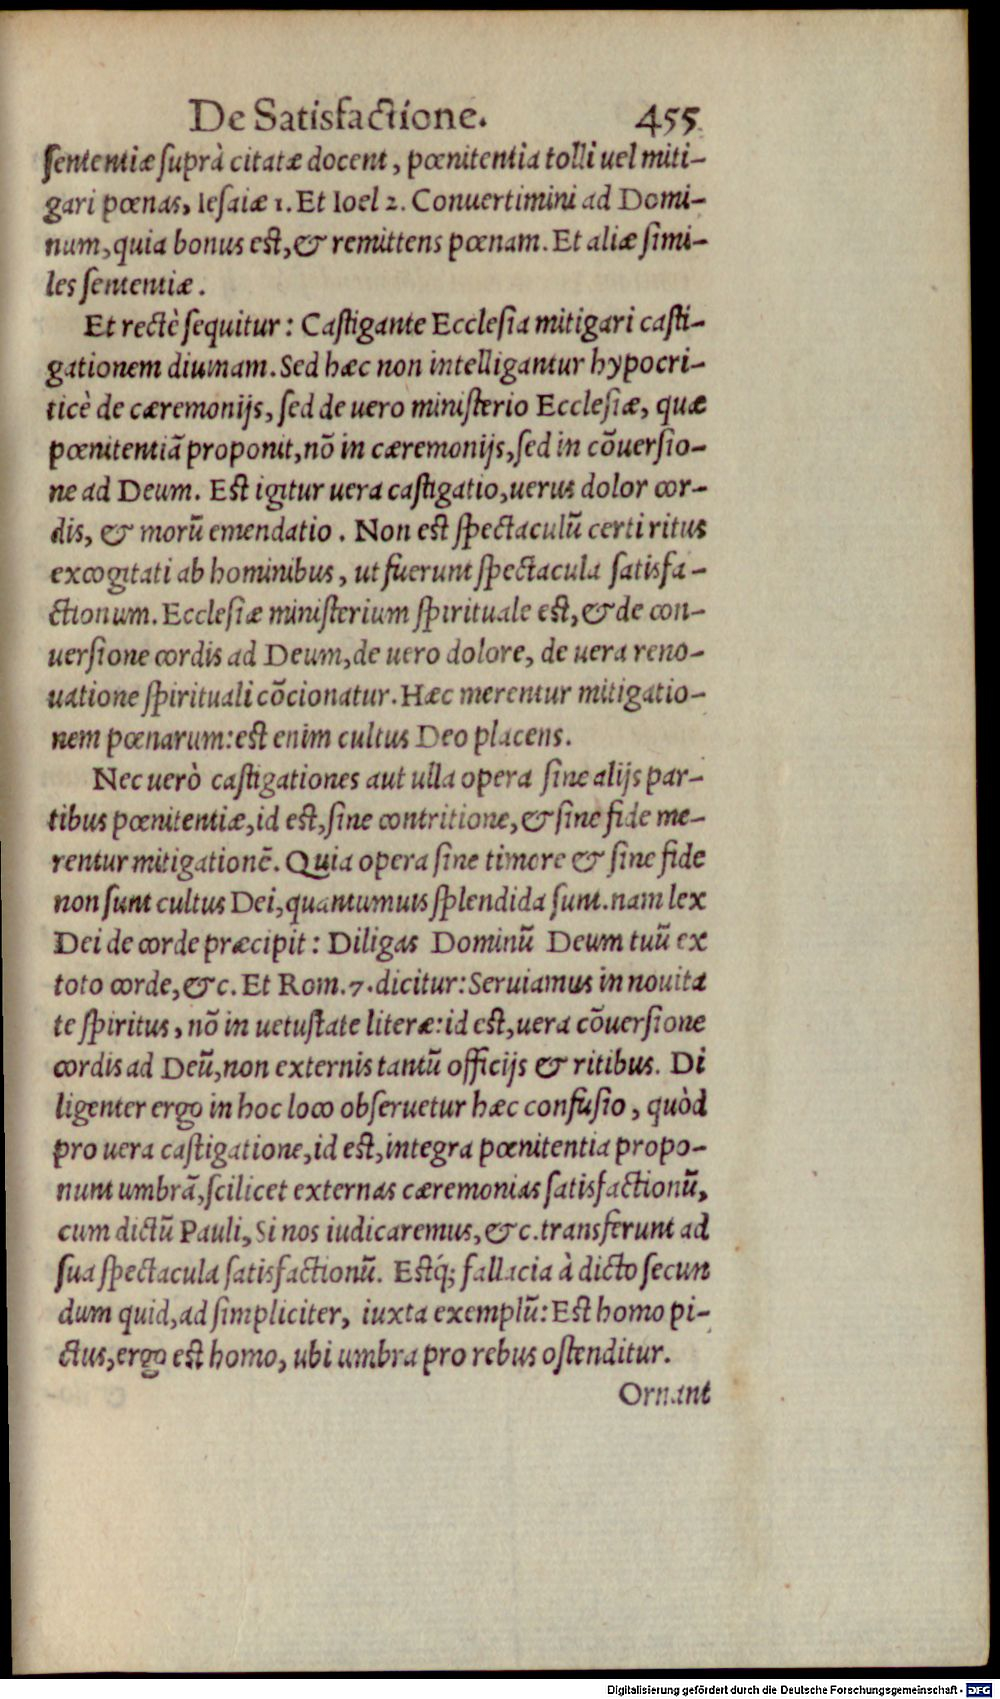 De Satisfactione. 455
sententiæ suprà citatæ docent, pœnitentia tolli uel miti-
gari pœnas, Iesaiæ 1. Et Ioel 2. Conuertimini ad Domi-
num, quia bonus est, & remittens pœnam. Et aliæ simi-
les sententiæ.
Et rectè sequitur: Castigante Ecclesia mitigari casti-
gationem diuinam. Sed hæc non intelligantur hypocri-
ticè de cæremonijs, sed de uero ministerio Ecclesiæ, quæ
pœnitentiā proponit, nō in cæremonijs, sed in cōuersio-
ne ad Deum. Est igitur uera castigatio, uerus dolor cor-
dis, & morū emendatio. Non est spectaculū certi ritus
excogitati ab hominibus, ut fuerunt spectacula satisfa-
ctionum. Ecclesiæ ministerium spirituale est, & de con-
uersione cordis ad Deum, de uero dolore, de uera reno-
uatione spirituali cōcionatur. Hæc merentur mitigatio-
nem pœnarum: est enim cultus Deo placens.
Nec uerò castigationes aut ulla opera sine alijs par-
tibus pœnitentiæ, id est, sine contritione, & sine fide me-
rentur mitigationē. Quia opera sine timore & sine fide
non sunt cultus Dei, quantumuis splendida sunt. nam lex
Dei de corde præcipit: Diligas Dominū Deum tuū ex
toto corde, &c. Et Rom. 7. dicitur: Seruiamus in nouita
te spiritus, nō in uetustate literæ: id est, uera cōuersione
cordis ad Deū, non externis tantū officijs & ritibus. Di
ligenter ergo in hoc loco obseruetur hæc confusio, quòd
pro uera castigatione, id est, integra pœnitentia propo-
nunt umbrā, scilicet externas cæremonias satisfactionū,
cum dictū Pauli, Si nos iudicaremus, &c. transferunt ad
sua spectacula satisfactionū. Estq́; fallacia à dicto secun
dum quid, ad simpliciter, iuxta exemplū: Est homo pi-
ctus, ergo est homo, ubi umbra pro rebus ostenditur.
Ornant
Digitalisierung gefördert durch die Deutsche Forschungsgemeinschaft - DFG